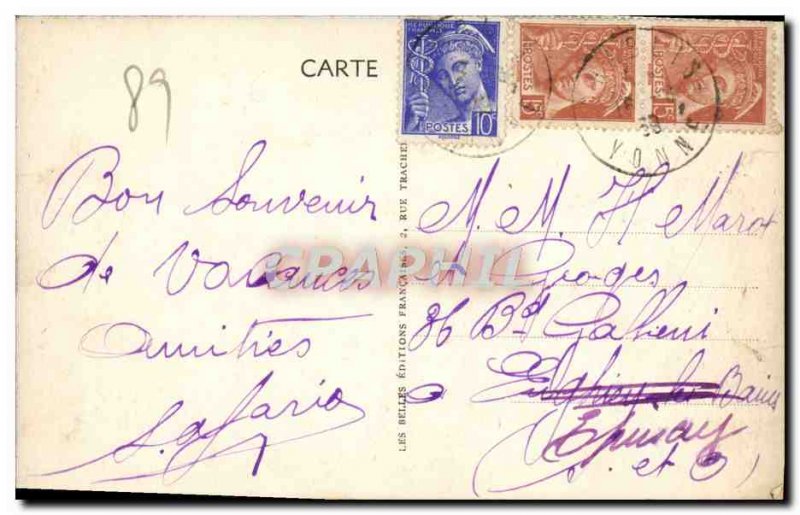 89
CARTE
REPUBLIQUE FRANÇAISE
POSTES 10c
POSTES 15c
POSTES 15c
YONNE
Bon Souvenir
de Vacances
Amitiés
LES BELLES ÉDITIONS FRANÇAISES, 2, RUE TRACHEL
M. M. H Marot
Georges
86 Bd Gallieni
à Enghien les Bains
Epinay
S. et O)
CPAPHIL